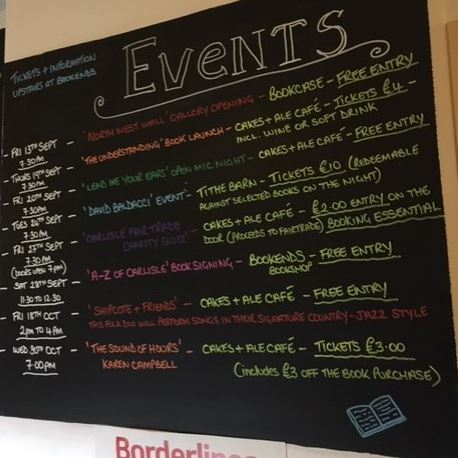 TICKETS + INFORMATION
UPSTAIRS AT BOOKENDS
EVENTS
FRI 13TH SEPT - 'NORTH WEST WALL' GALLERY OPENING - BOOKCASE - FREE ENTRY
7:30PM
THURS 19TH SEPT - 'THE UNDERSTANDING' BOOK LAUNCH - CAKES + ALE CAFÉ - TICKETS £4 -
7.30PM INCL. WINE OR SOFT DRINK
FRI 20TH SEPT - 'LEND ME YOUR EARS' OPEN MIC NIGHT - CAKES + ALE CAFÉ - FREE ENTRY
7.30PM
TUES 24TH SEPT - 'DAVID BALDACCI' EVENT - TITHE BARN - TICKETS £10 (REDEEMABLE
7.30PM AGAINST SELECTED BOOKS ON THE NIGHT)
FRI 27TH SEPT - 'CARLISLE FAIR TRADE - CAKES + ALE CAFÉ - £2.00 ENTRY ON THE
7.30PM CHARITY QUIZ' DOOR (PROCEEDS TO FAIRTRADE) BOOKING ESSENTIAL
(DOORS OPEN 7PM)
SAT 28TH SEPT - 'A-Z OF CARLISLE' BOOK SIGNING - BOOKENDS - FREE ENTRY
11:30 TO 12:30 BOOKSHOP
FRI 18TH OCT - 'SHIPCOTE + FRIENDS' - CAKES + ALE CAFÉ - FREE ENTRY
2PM TO 4PM THIS FOLK DUO WILL PERFORM SONGS IN THEIR SIGNATURE COUNTRY-JAZZ STYLE
WED 30TH OCT - 'THE SOUND OF HOURS' - CAKES + ALE CAFÉ - TICKETS £3.00
7.00PM KAREN CAMPBELL (INCLUDES £3 OFF THE BOOK PURCHASE)
Borderlines